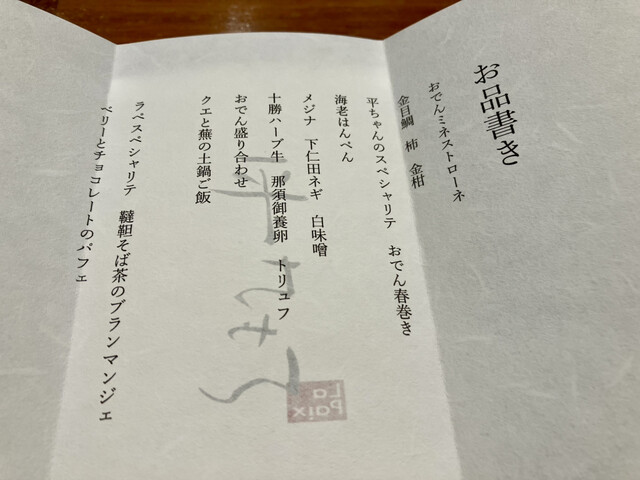 お品書き
おでんミネストローネ
金目鯛　柿　金柑
平ちゃんのスペシャリテ　おでん春巻き
海老はんぺん
メジナ　下仁田ネギ　白味噌
十勝ハーブ牛　那須御養卵　トリュフ
おでん盛り合わせ
クエと蕪の土鍋ご飯
ラペスペシャリテ　韃靼そば茶のブランマンジェ
ベリーとチョコレートのパフェ
平ちゃん
La
Paix